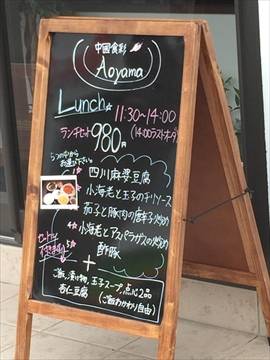 中国食彩
Aoyama
Lunch
11:30~14:00
ランチセット 980円 (14:00ラストオーダー)
5つの中から
お選び下さい。
四川麻婆豆腐
小海老と玉子のチリソース
茄子と豚肉の唐辛子炒め
小海老とアスパラガスの炒め
酢豚
+
ご飯、漬け物、玉子スープ、点心2品
杏仁豆腐 (ご飯おかわり自由)